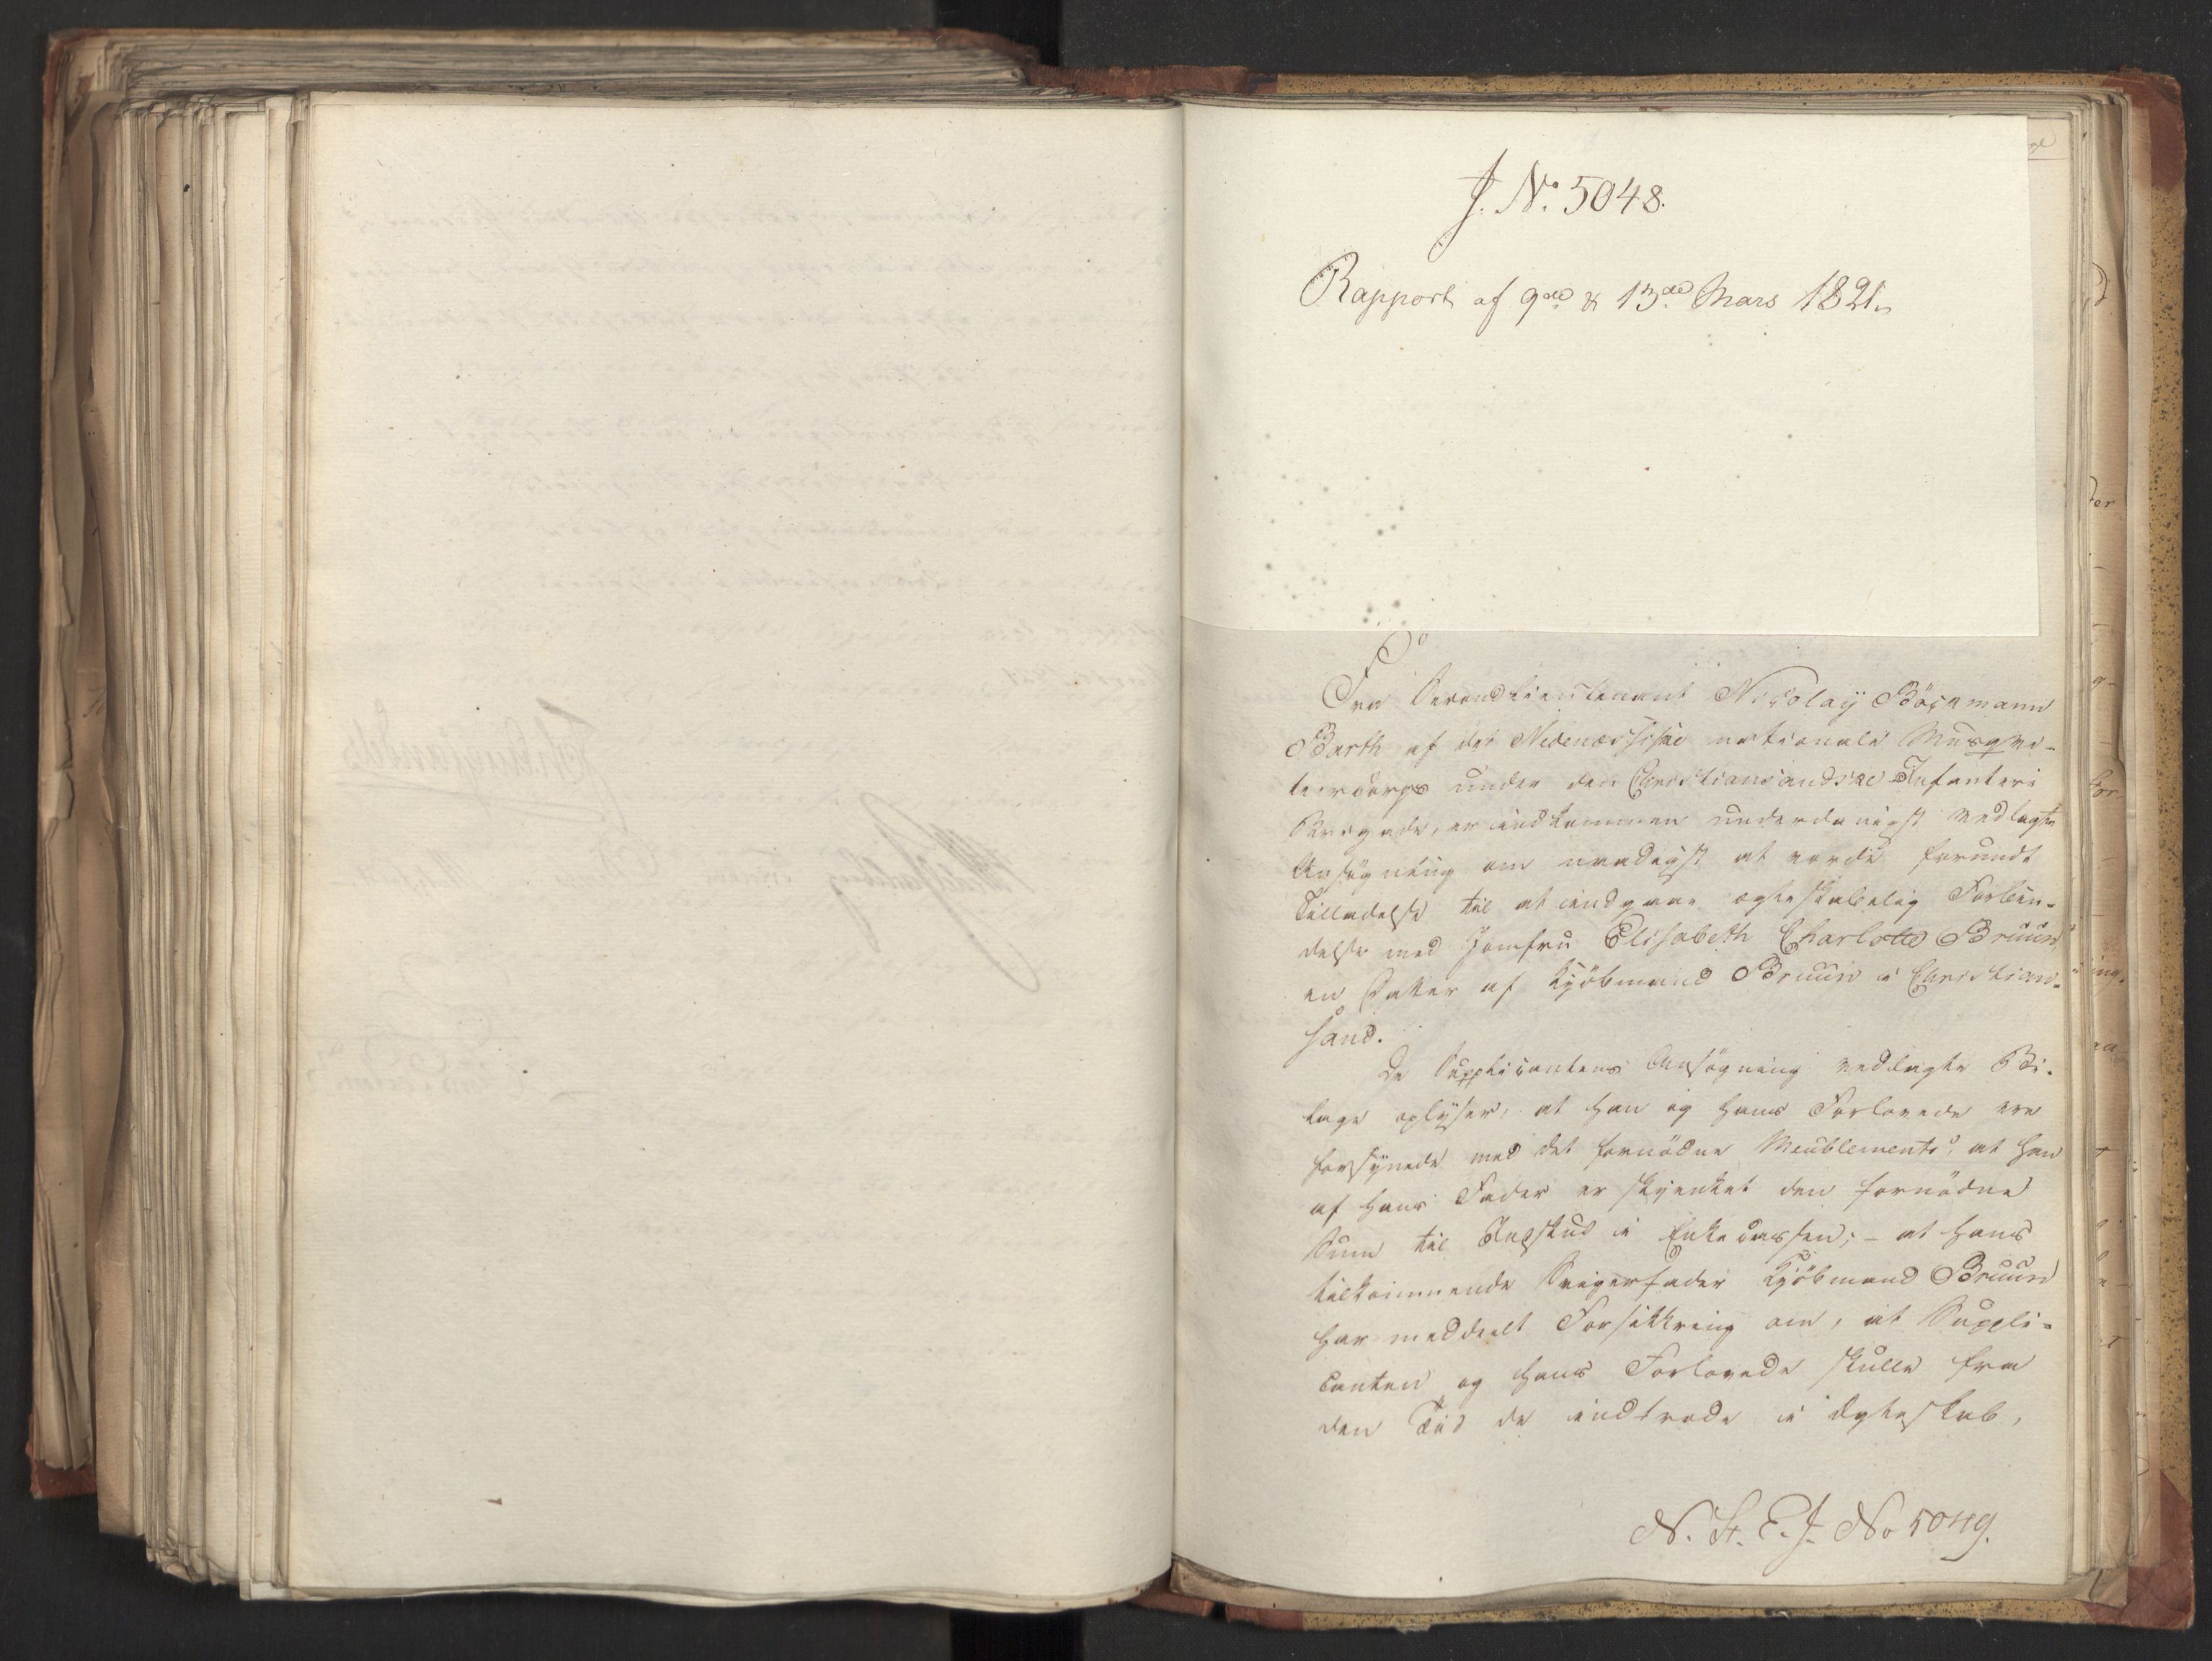 J. No. 5048.
Rapport af 9de & 13de Mars 1821.
Fra Secondlieutenant Nicolaÿ Böckmann
Barth af det Nedenæsiske nationale Musqve-
teercorps under den Christiansandske Infanteri
Brigade, er indkommen underdanigst vedlagte
Ansøgning om naadigst at vorde forundt
Tilladelse til at indgaae ægteskabelig Forbin-
delse med Jomfru Elisabeth Charlotte Bruun,
en Datter af Kjöbmand Bruun i Christian-
sand.
De Supplicantens Ansögning vedlagte Bi-
lage oplÿser, at han og hans Forlovede ere
forsÿnede med det fornödne Meublement; at han
af hans Fader er skjenket den fornödne
Sum til Indskud i Enkecassen; - at hans
tilkommende Svigerfader Kjöbmand Bruun
har meddeelt Forsikkring om, at Suppli-
canten og hans Forlovede skulle fra
den Tid de indtræde i Ægteskab,
N. St. E. J. No 5049.